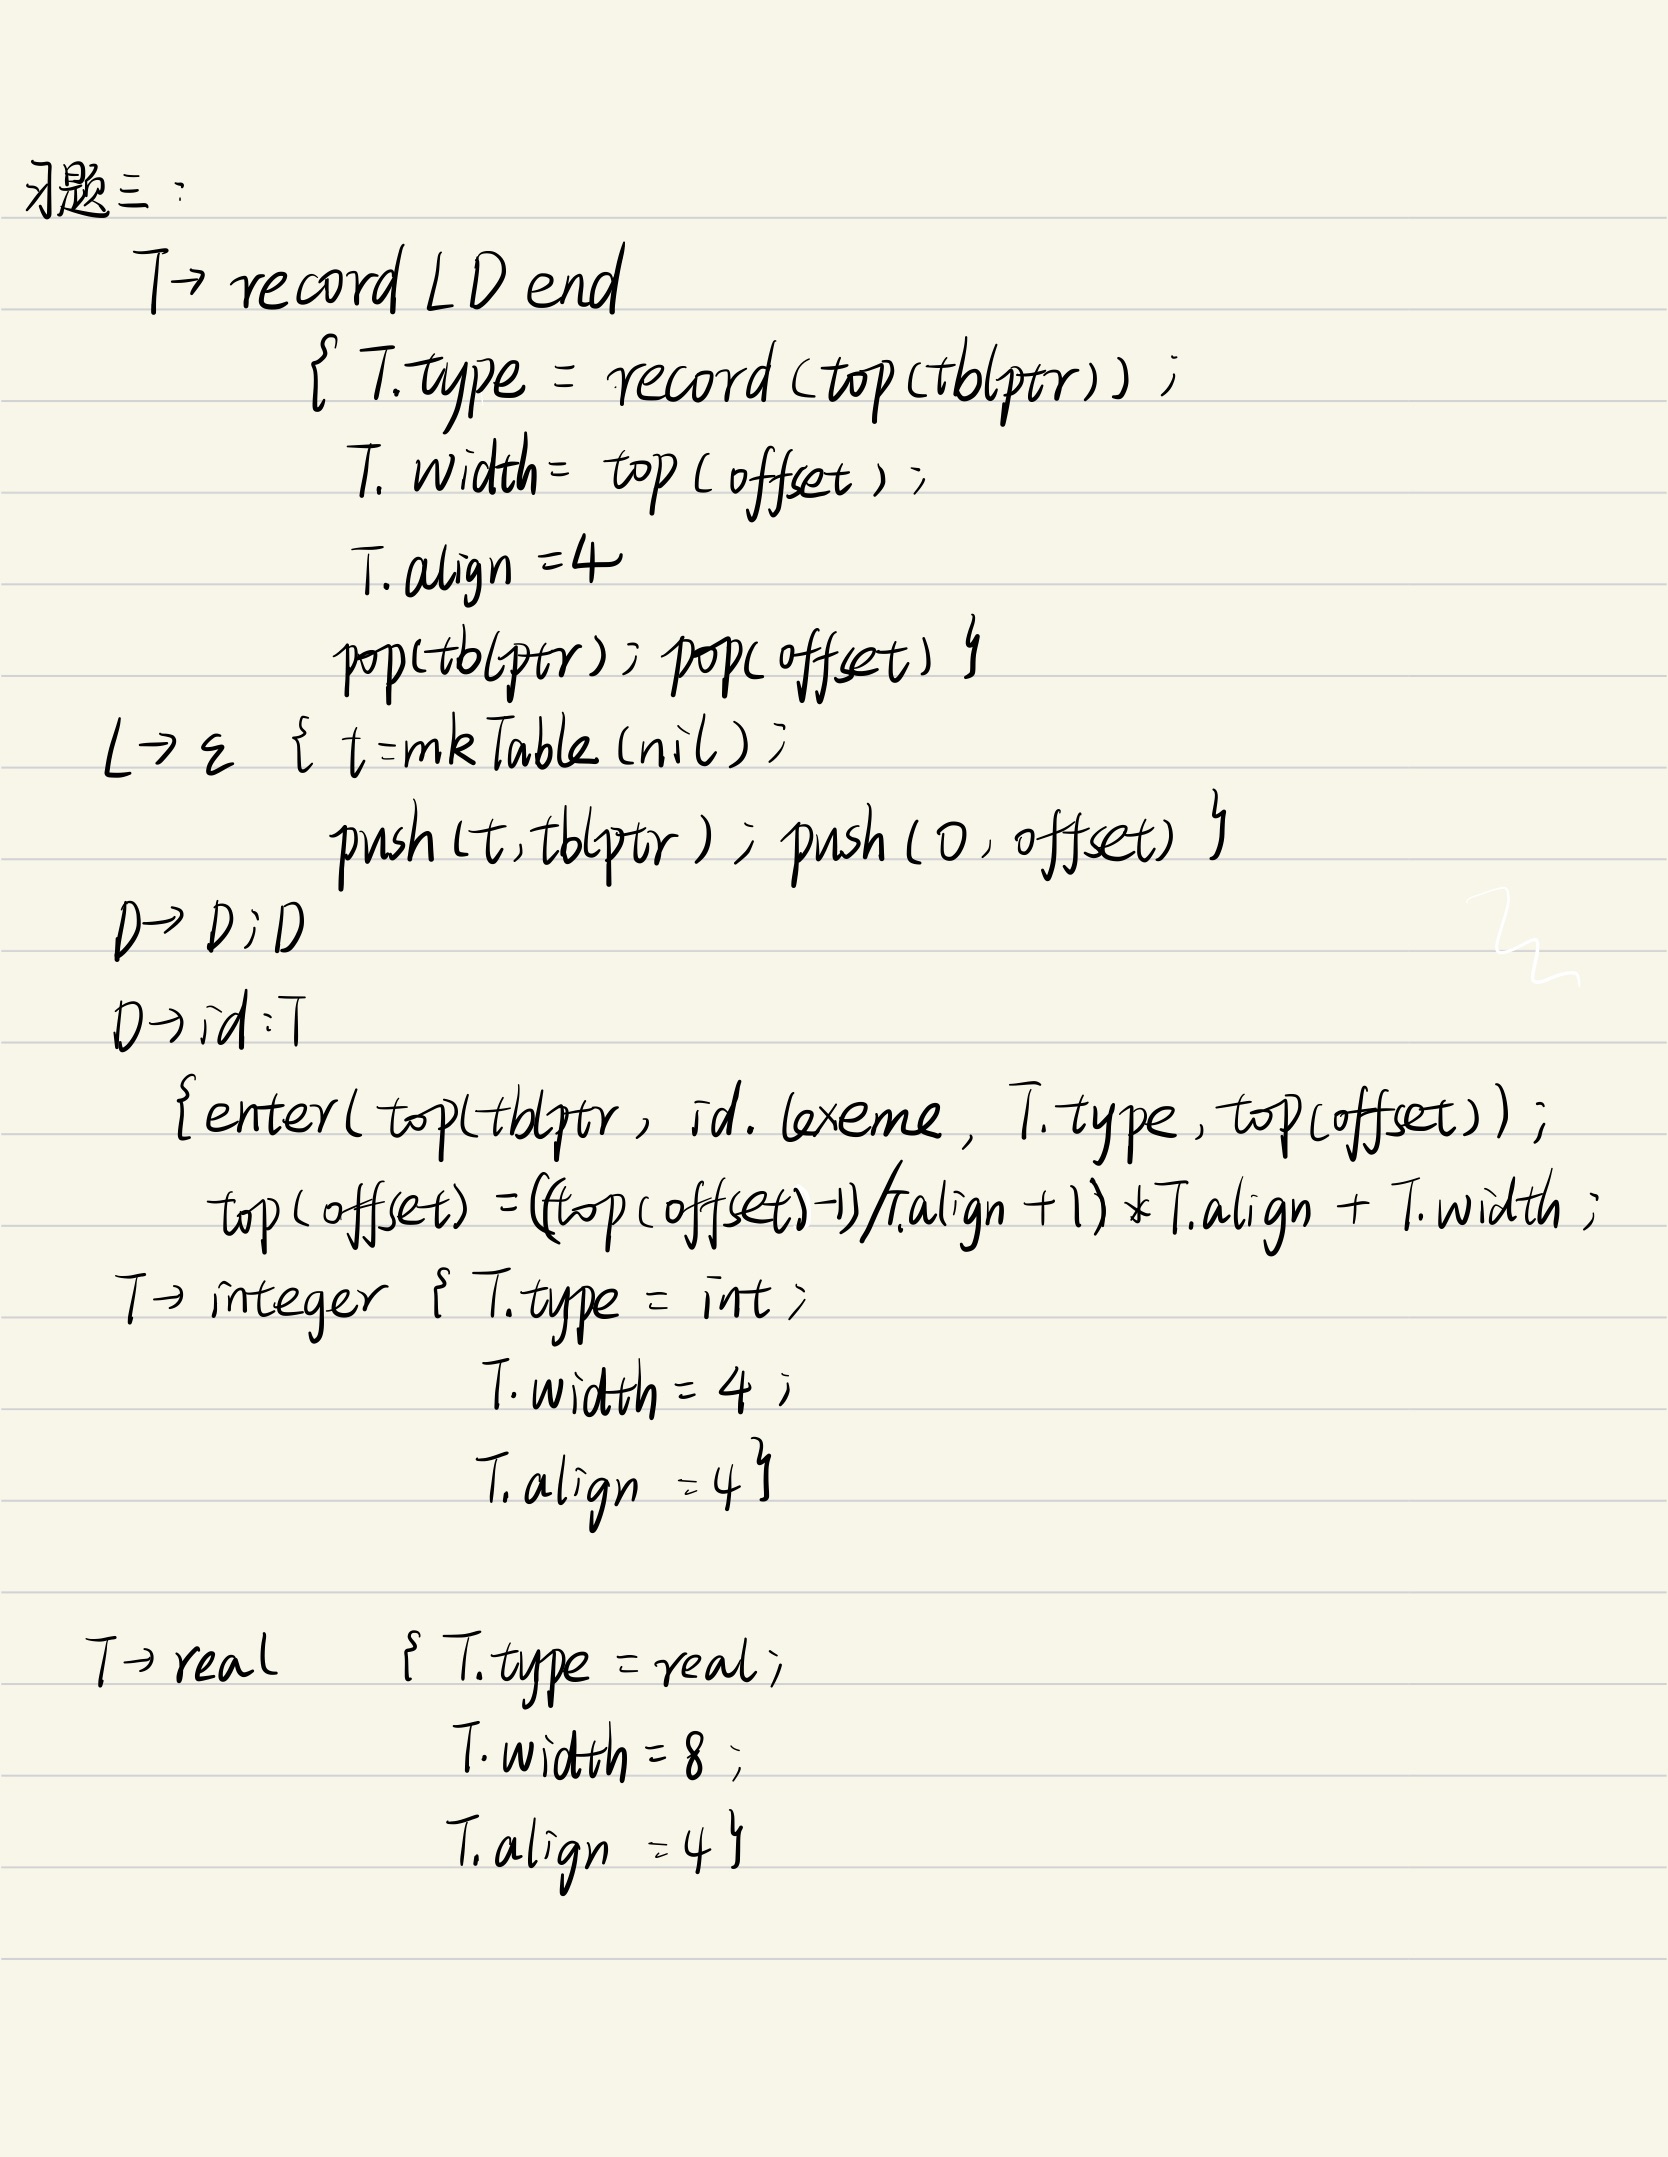 习题三:
T→ record L D end
{ T.type = record (top(tblptr)) ;
T. width = top(offset) ;
T.align = 4
pop(tblptr) ; pop(offset) }
L→ ε { t=mkTable (nil) ;
push (t, tblptr) ; push (0, offset) }
D→ D ; D
D→ id : T
{enter( top(tblptr , id. lexeme , T.type , top(offset)) ;
top(offset) = ((top(offset)-1)/T.align + 1) * T.align + T.width ;
T→ integer { T.type = int ;
T.width = 4 ;
T.align = 4 }
T→ real { T.type = real ;
T.width = 8 ;
T.align = 4 }